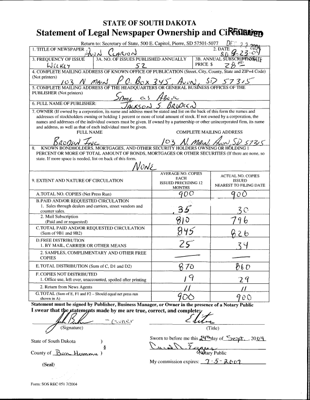 STATE OF SOUTH DAKOTA
Statement of Legal Newspaper Ownership and Circulation
Return to: Secretary of State, 500 E. Capitol, Pierre, SD 57501-5077
1. TITLE OF NEWSPAPER Avon Clarion
2. DATE
3. FREQUENCY OF ISSUE Weekly
3A. NO. OF ISSUES PUBLISHED ANNUALLY 52
3B. ANNUAL SUBSCRIPTION PRICE $ 28
4. COMPLETE MAILING ADDRESS OF KNOWN OFFICE OF PUBLICATION (Street, City, County, State and ZIP+4 Code) (Not printers)
103 N Main P.O Box 345 Avon, SD 57315
5. COMPLETE MAILING ADDRESS OF THE HEADQUARTERS OR GENERAL BUSINESS OFFICES OF THE PUBLISHER (Not printers)
Same as Above
6. FULL NAME OF PUBLISHER
Jackson S
7. OWNER (If owned by a corporation, its name and address must be stated and list on the back of this form the names and
addresses of stockholders owning or holding 1 percent or more of total amount of stock. If not owned by a corporation, the
names and addresses of the individual owners must be given. If owned by a partnership or other unincorporated firm, its name
and address, as well as that of each individual must be given.
FULL NAME
COMPLETE MAILING ADDRESS
103 N. Main Avon, SD 57315
8. KNOWN BONDHOLDERS, MORTGAGES, AND OTHER SECURITY HOLDERS OWNING OR HOLDING 1
PERCENT OR MORE OF TOTAL AMOUNT OF BONDS, MORTGAGES OR OTHER SECURITIES (If there are none, so
state. If more space is needed, list on back of this form.
None
9. EXTENT AND NATURE OF CIRCULATION
AVERAGE NO. COPIES EACH ISSUED PRECEDING 12 MONTHS
ACTUAL NO. COPIES ISSUED NEAREST TO FILING DATE
A. TOTAL NO. COPIES (Net Press Run) 900 900
B. PAID AND/OR REQUESTED CIRCULATION
1. Sales through dealers and carriers, street vendors and counter sales. 35 30
2. Mail Subscription (Paid and or requested) 810 796
C. TOTAL PAID AND/OR REQUESTED CIRCULATION (Sum of 9B1 and 9B2) 845 826
D. FREE DISTRIBUTION
1. BY MAIL, CARRIER OR OTHER MEANS 25 34
2. SAMPLES, COMPLIMENTARY AND OTHER FREE COPIES
E. TOTAL DISTRIBUTION (Sum of C, D1 and D2) 870 860
F. COPIES NOT DISTRIBUTED
1. Office use, left over, unaccounted, spoiled after printing 19 29
2. Return from News Agents 11 11
G. TOTAL (Sum of E, F1 and F2 - Should equal net press run shown in A) 900 900
Statement must be signed by Publisher, Business Manager, or Owner in the presence of a Notary Public
I swear that the statements made by me are true, correct, and complete:
(Signature)
(Title)
State of South Dakota )
County of Bon Homme )
Sworn to before me this 24th day of Sept. 2004
Notary Public
(Seal)
My commission expires: 7-5-2007
Form: SOS REC 051 7/2004